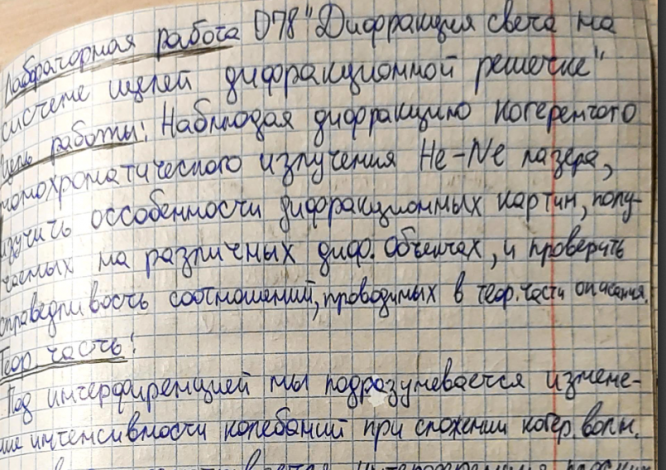 Лабораторная работа О78 "Дифракция света на
системе щелей дифракционной решетке"
Цель работы: Наблюдая дифракцию когерентного
монохроматического излучения He-Ne лазера,
изучить оссобенности дифракционных картин, полу-
чаемых на различных диф. объектах, и проверить
справедливость соотношений, проводимых в теор. части описания.
Теор часть:
Под интерференцией мы подразумевается измене-
ние интенсивности колебаний при сложении когер. волн.